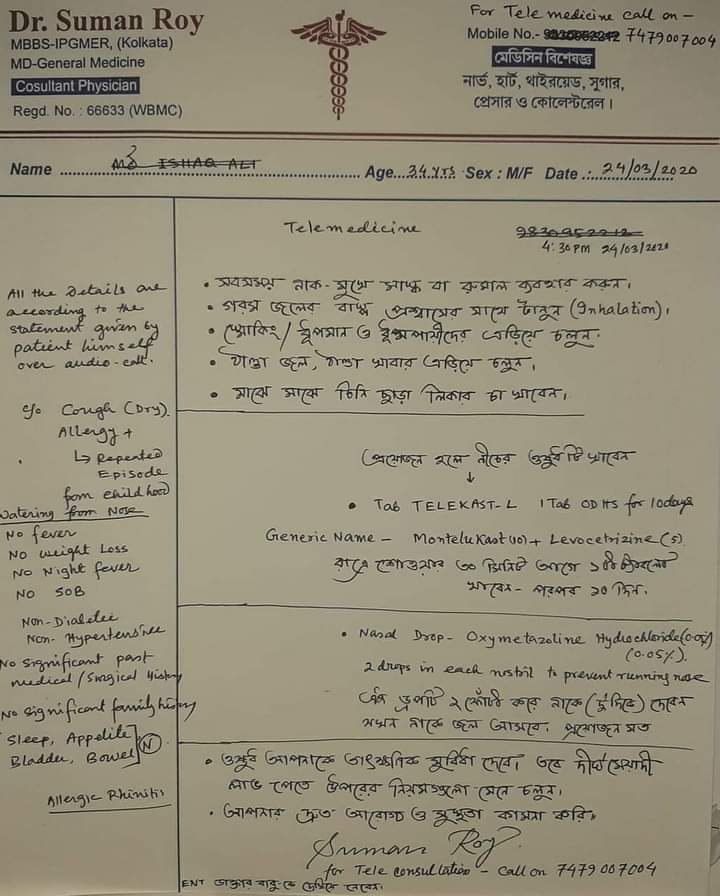 Dr. Suman Roy
MBBS-IPGMER, (Kolkata)
MD-General Medicine
Cosultant Physician
Regd. No. : 66633 (WBMC)
For Tele medicine call on -
Mobile No.- 9830952212 7479007004
মেডিসিন বিশেষজ্ঞ
নার্ভ, হার্ট, থাইরয়েড, সুগার,
প্রেসার ও কোলেস্টরেল।
Name MD ISHAQ ALI Age...34 yrs Sex : M/F Date : 24/03/2020
Telemedicine
9830952212
4:30 PM 24/03/2020
All the Details are
according to the
statement given by
patient himself
over audio-call.
c/o Cough (Dry)
Allergy +
↳ Repeated
Episode
from childhood
Watering from Nose
No fever
No weight Loss
No Night fever
No SOB
Non-Diabetic
Non-Hypertensive
No Significant past
medical/Surgical History
No Significant family history
Sleep, Appetite
Bladder, Bowel] (N)
Allergic Rhinitis
• সবসময় নাক-মুখে মাস্ক বা রুমাল ব্যবহার করুন।
• গরম জলের বাষ্প প্রশ্বাসের সাথে টানুন (Inhalation)।
• স্মোকিং/ধূমপান ও ধূমপায়ীদের এড়িয়ে চলুন।
• ঠাণ্ডা জল, ঠাণ্ডা খাবার এড়িয়ে চলুন।
• মাঝে মাঝে চিনি ছাড়া লিকার চা খাবেন।
প্রয়োজন হলে নীচের ওষুধটি খাবেন
↓
• Tab TELEKAST-L 1 Tab OD HS for 10 days
Generic Name - Montelukast (10) + Levocetrizine (5)
রাত্রে শোওয়ার ৩০ মিনিট আগে ১টি
খাবেন - পরপর ১০ দিন.
• Nasal Drop - Oxymetazoline Hydrochloride (0.05%)
(0.05%).
2 drops in each nostril to prevent running nose
এই ড্রপটি ২ ফোঁটা করে নাকে (দু'দিকে) দেবেন
যখন নাকে জল আসবে. প্রয়োজন মত
• ওষুধ আপনাকে তাৎক্ষণিক সুবিধা দেবে। তবে দীর্ঘমেয়াদী
লাভ পেতে উপরের নিয়মগুলো মেনে চলুন।
• আপনার দ্রুত আরোগ্য ও সুস্থতা কামনা করি।
Suman Roy
for Tele consultation - Call on 7479007004
ENT ডাক্তার বাবু কে দেখিয়ে নেবেন।